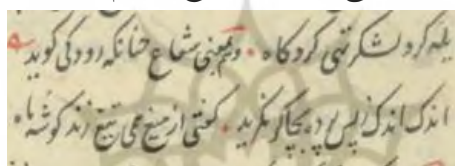 یله کرد و لشکر تنی کرد کاه • و بمعنی شعاع چنانکه رودکی کوید
اندک اندک ز پس پرده بچاکر نکرید • کفتی از میغ همی تیغ زند کوشهٔ ماه